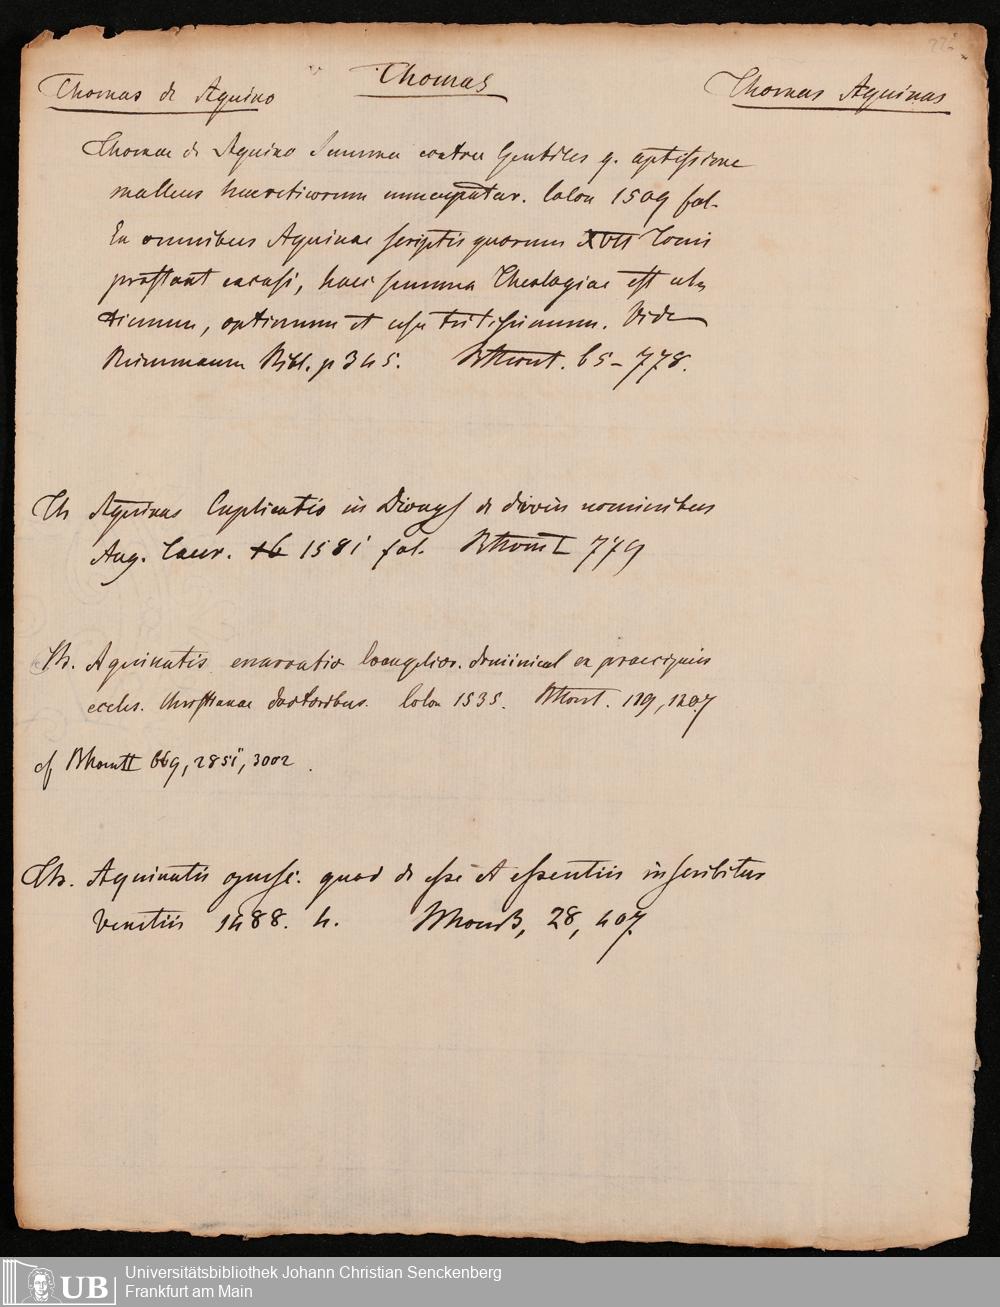 Thomas de Aquino Thomas Thomas Aquinas
Thomae de Aquino Summa contra Gentiles q. aptissime
malleus haereticorum nuncupatur. Colon 1509 fol.
In omnibus Aquinae scriptis quorum XVII Tomi
prostant excusi, haec summa Theologiae est
optimum et usu tritissimum. Vide
Reimmann Bibl. p 345. 65-778.
Th Aquinas Explicatio in Dionys de divin nominibus
Aug. 1581 fol. I 779
Th. Aquinatis enarratio Evangelior. dominical ex praecipuis
eccles. Christianae doctoribus. Colon 1535. 119, 1207
cf II 669, 2851, 3002.
Th. Aquinatis opusc. quod de esse et essentiis inscribitur
Venetiis 1488. 4. 28, 407.
Universitätsbibliothek Johann Christian Senckenberg
Frankfurt am Main
UB